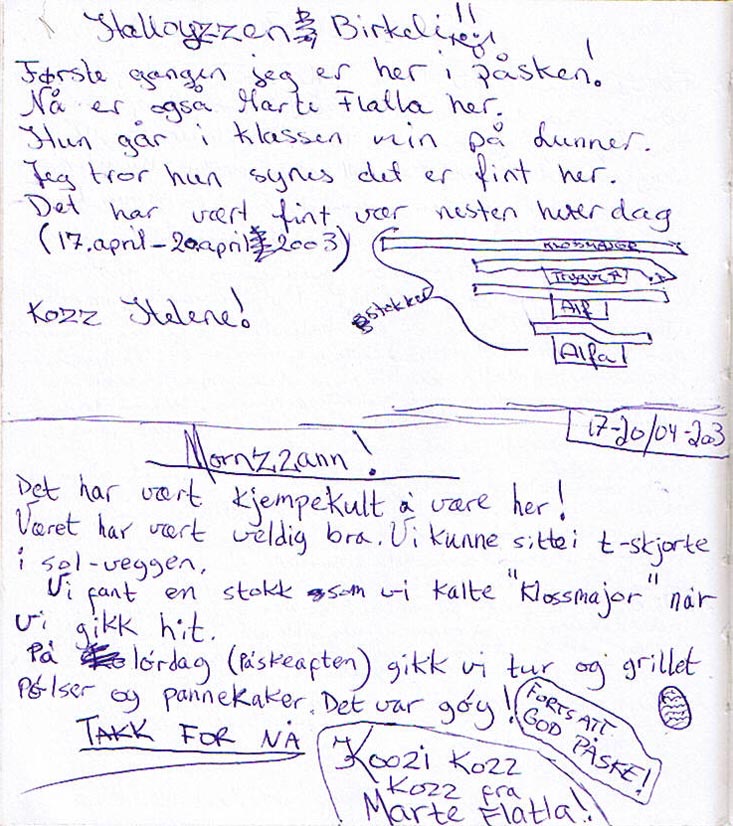 Halloyzzen Birkeli!!
Første gangen jeg er her i påsken!
Nå er også Marte Flatla her.
Hun går i klassen min på Lunner.
Jeg tror hun synes det er fint her.
Det har vært fint vær nesten hver dag
(17.april-20april 2003)
KLOSSMAJOR
Alf
stokker
Alfa
Kozz Helene!
17-20/04-2003
Mornzzann!
Det har vært kjempekult å være her!
Været har vært veldig bra. Vi kunne sitte i t-skjorte
i sol-veggen.
Vi fant en stokk som vi kalte "Klossmajor" når
vi gikk hit.
På lørdag (påskeaften) gikk vi tur og grillet
pølser og pannekaker. Det var gøy!
FORTSATT
GOD PÅSKE!
TAKK FOR NÅ
Koozi Kozz
Kozz fra
Marte Flatla!